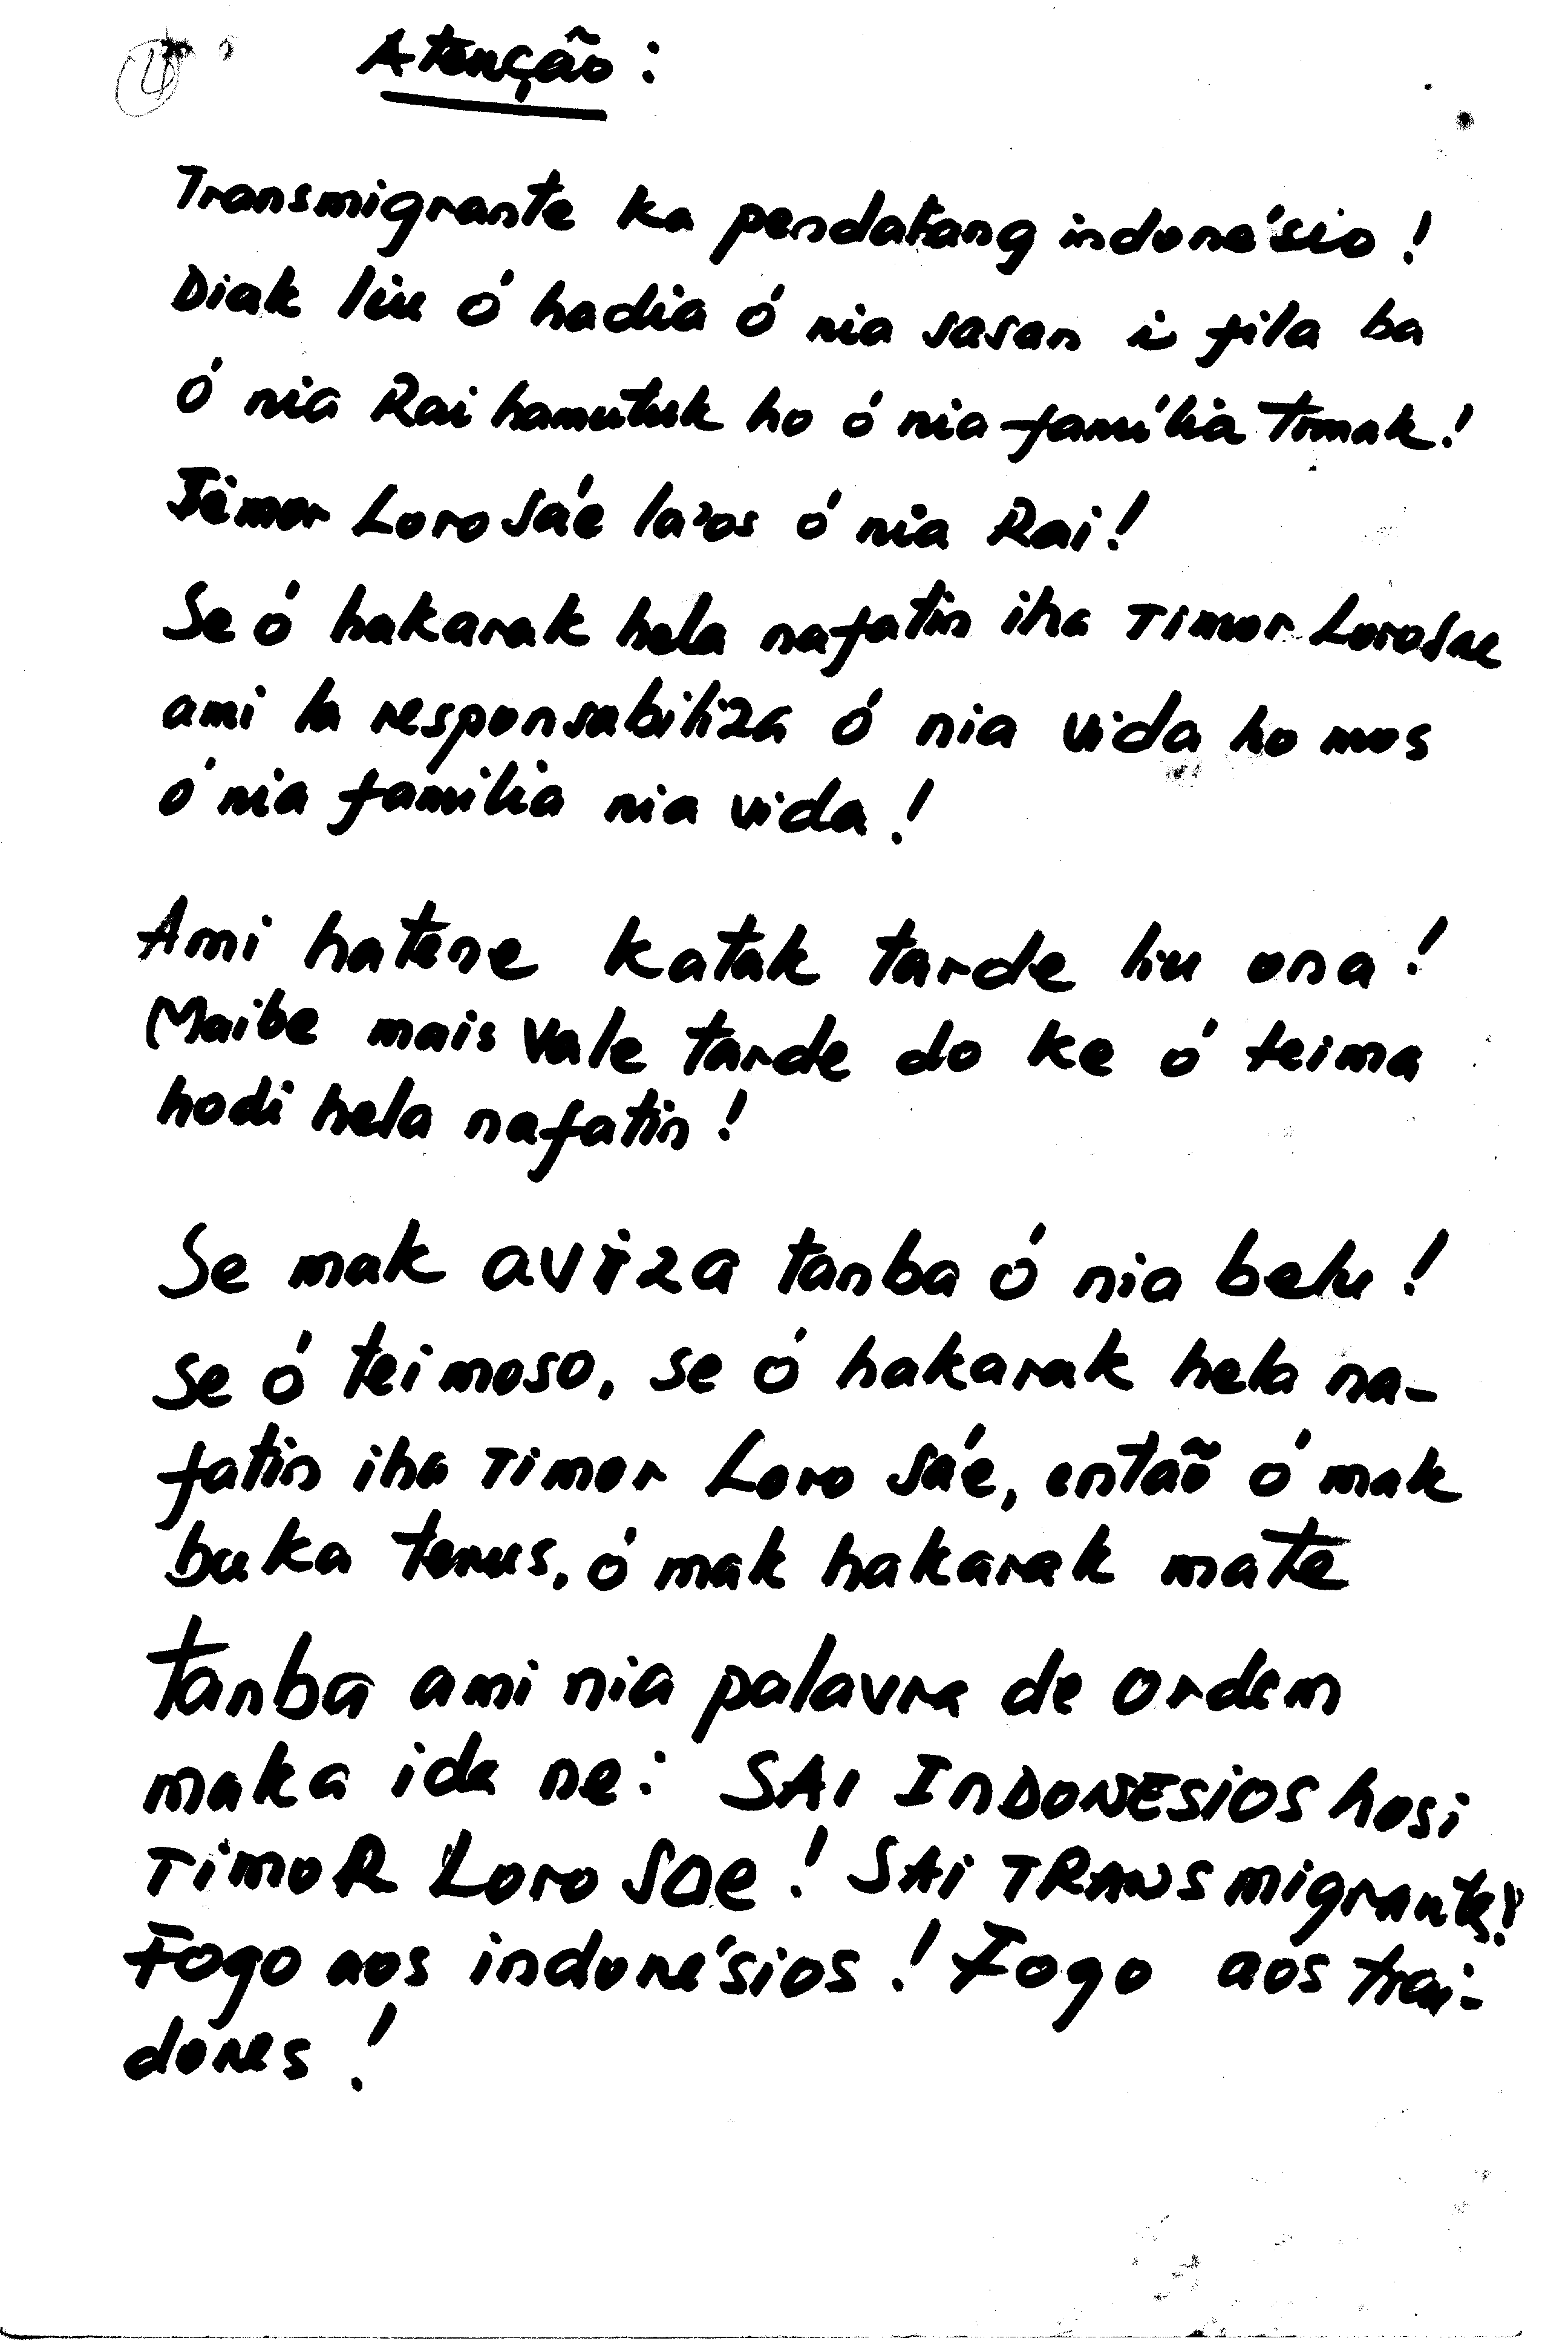 4
Atenção :
Transmigrante ka pendatang indonésio !
Diak liu ó hadia ó nia sasan i fila ba
ó nia Rai hamutuk ho ó nia família tomak !
Timor Loro Sáe la'os ó nia Rai !
Se ó hakarak hela nafatin iha Timor LoroSae
ami la responsabiliza ó nia vida ho mos
ó nia familia nia vida !
Ami hatene katak tarde liu ona !
Maibe mais vale tarde do ke ó teima
hodi hela nafatin !
Se mak aviza tanba ó nia belu !
se ó teimoso, se ó hakarak hela na-
fatin iha Timor Loro Sáe, então ó mak
buka terus, ó mak hakarak mate
tanba ami nia palavra de ordem
maka ida ne : SAI INDONESIOS hosi
TIMOR Loro Sae ! SAI TRANSmigrantes !
Fogo aos indonésios ! Fogo aos trai-
dores !